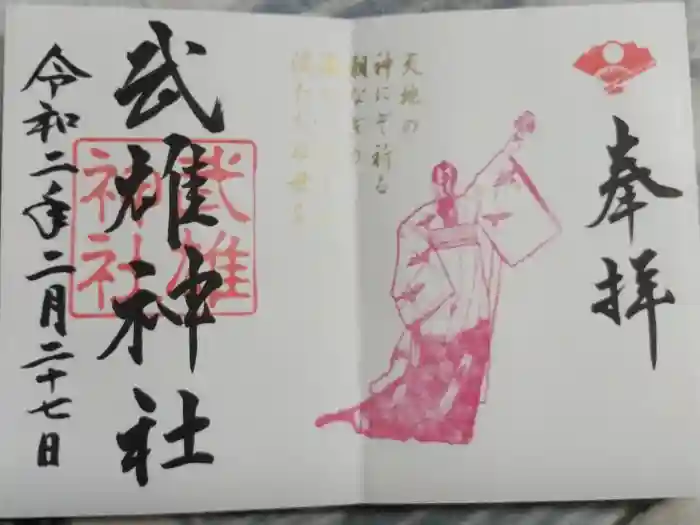 奉拝
天地の
神にぞ祈る
朝なぎの
武雄神社
武雄
神社
令和二年二月二十七日